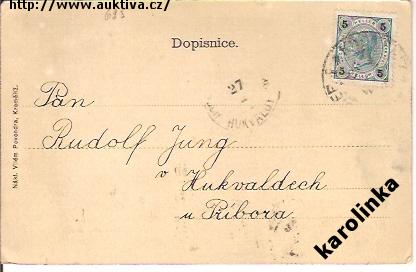 http://www.auktiva.cz/
Dopisnice.
5 5
5 5
27
HUKVALDY
Pán
Rudolf Jung
v Hukvaldech
u Příbora.
Nákl. Vilém Povondra, Kroměříž.
karolinka